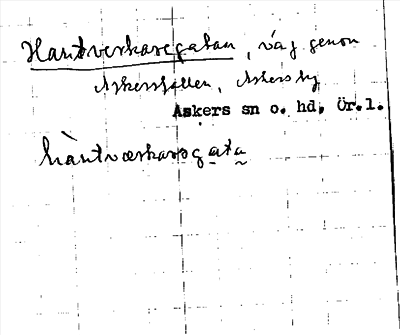 Hantverkaregatan, väg genom
Askersfallen, Askersby
Askers sn o. hd, Ör.l.
hàntværkarɘgata